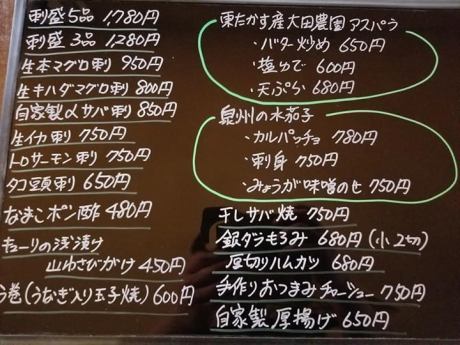 刺盛 5品 1,780円
刺盛 3品 1,280円
生本マグロ刺 950円
生キハダマグロ刺 800円
自家製〆サバ刺 850円
生イカ刺 750円
トロサーモン刺 750円
タコ頭刺 650円
なまこポン酢 480円
キューリの浅漬け
山わさびがけ 450円
う巻(うなぎ入り玉子焼) 600円
東たかす産太田農園アスパラ
・バター炒め 650円
・塩ゆで 600円
・天ぷら 680円
泉州の水茄子
・カルパッチョ 780円
・刺身 750円
・みょうが味噌のせ 750円
干しサバ焼 750円
銀ダラもろみ 680円(小2切)
厚切りハムカツ 680円
手作りおつまみチャーシュー 750円
自家製厚揚げ 650円